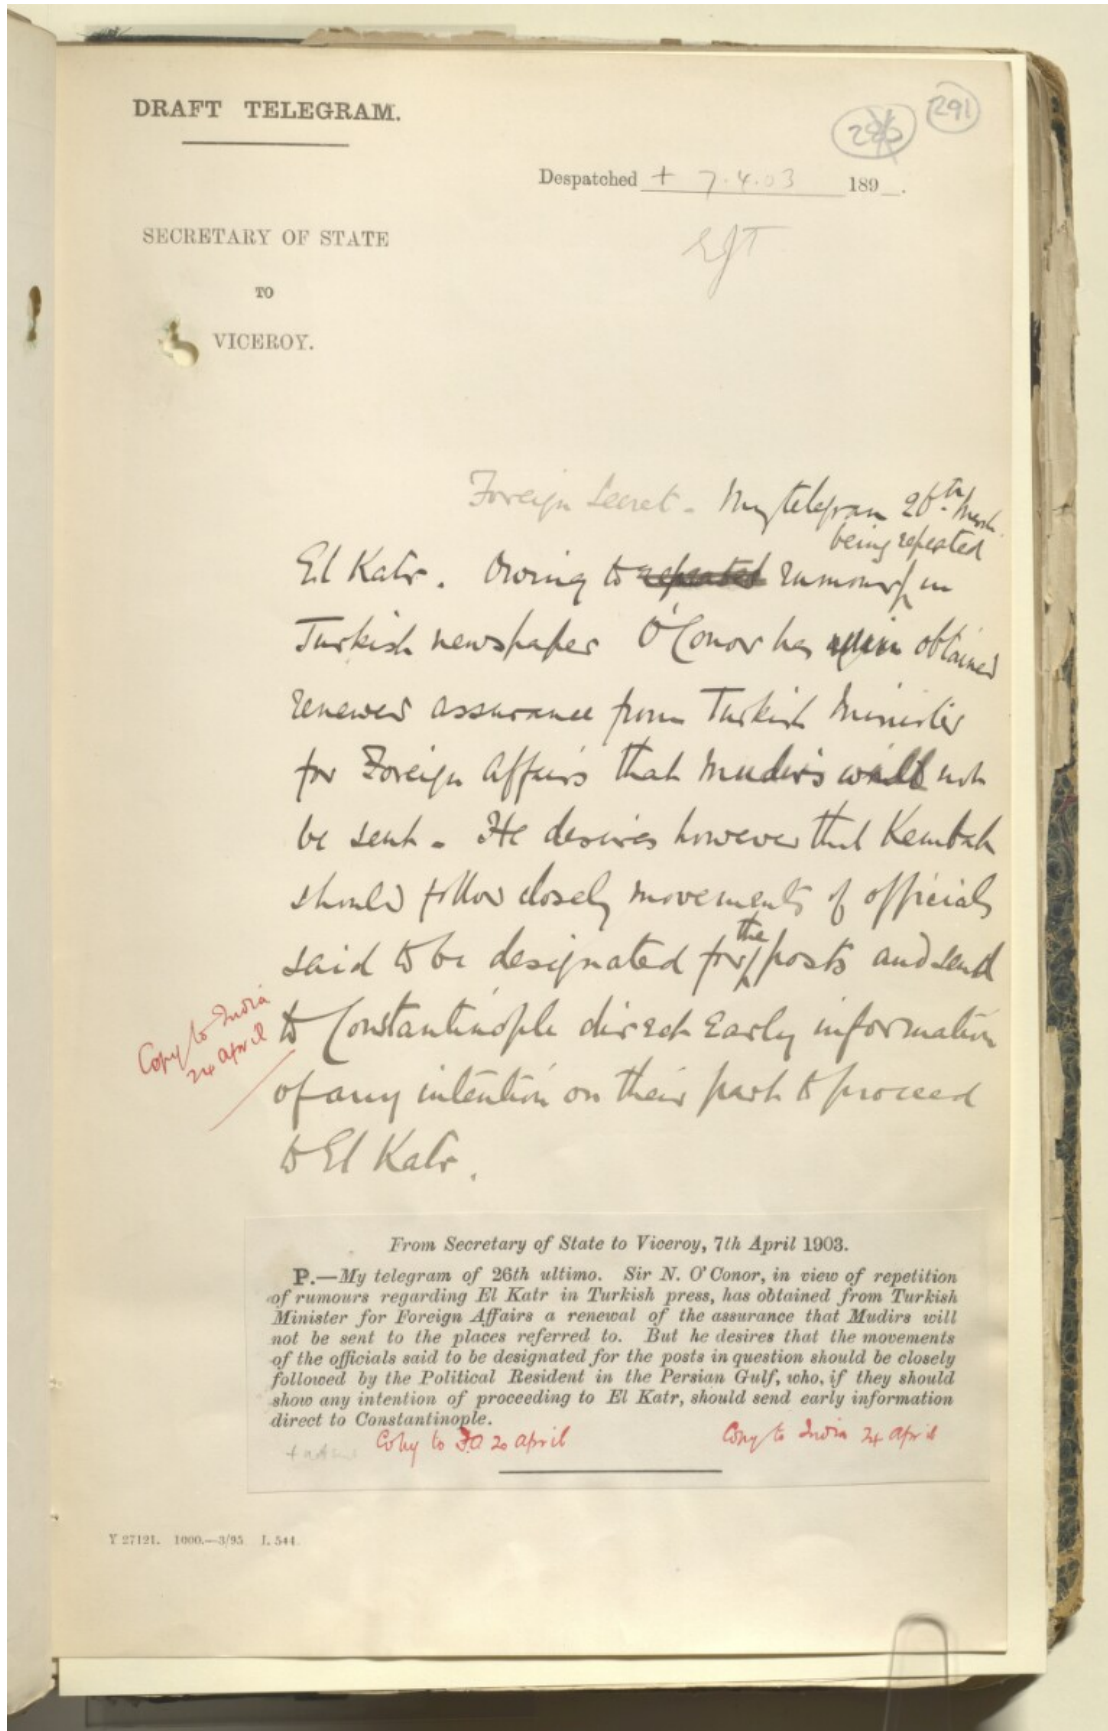 DRAFT TELEGRAM.
291
Despatched + 7.4.03 189 .
SECRETARY OF STATE
TO
VICEROY.
Foreign Secret. My telegram 26th March.
being repeated
El Katr. Owing to repeated rumours in
Turkish newspaper O'Conor has again obtained
renewed assurance from Turkish Minister
for Foreign Affairs that Mudirs will not
be sent. He desires however that Kemball
should follow closely movements of officials
the
said to be designated for posts and send
Copy to India
24 April
to Constantinople direct early information
of any intention on their part to proceed
to El Katr.
From Secretary of State to Viceroy, 7th April 1903.
P.—My telegram of 26th ultimo. Sir N. O'Conor, in view of repetition
of rumours regarding El Katr in Turkish press, has obtained from Turkish
Minister for Foreign Affairs a renewal of the assurance that Mudirs will
not be sent to the places referred to. But he desires that the movements
of the officials said to be designated for the posts in question should be closely
followed by the Political Resident in the Persian Gulf, who, if they should
show any intention of proceeding to El Katr, should send early information
direct to Constantinople.
Copy to FO 20 April Copy to India 24 April
Y 27121. 1000.—3/95. I. 544.